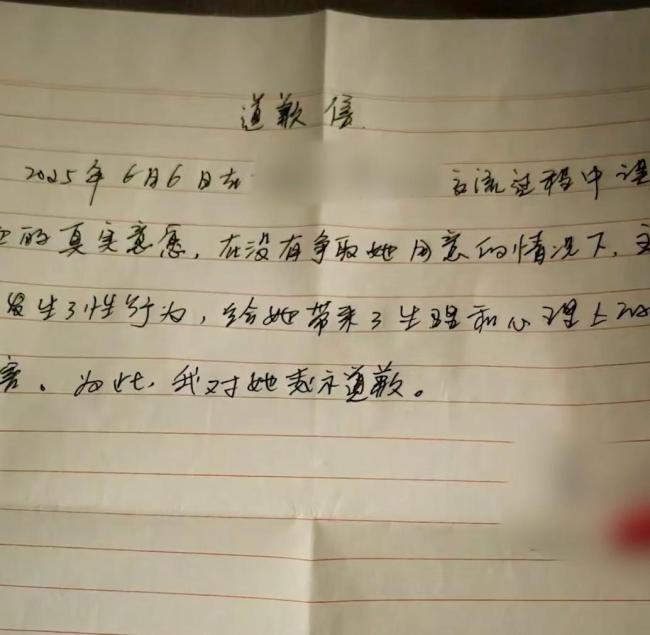 道歉信
2025年6月6日在 交流过程中误
的真实意愿，在没有争取她同意的情况下，主
发生了性行为，给她带来了生理和心理上的
害。为此，我对她表示道歉。